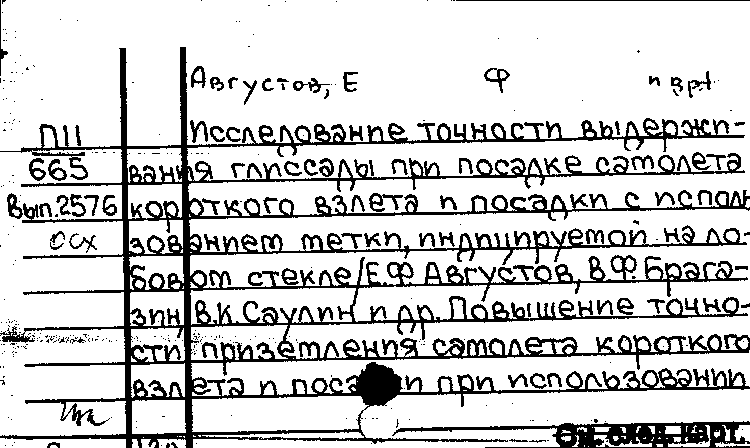 Августов, Е Ф и др
П11 Исследование точности выдержи-
665 вания глиссады при посадке самолета
Вып.2576 короткого взлета и посадки с исполь
осх зованием метки, индицируемой на ло-
бовом стекле/Е.Ф. Августов, В.Ф. Брага-
зин, В.К. Саулин и др. Повышение точно-
сти приземления самолета короткого
взлета и поса и при использовании
См. след. карт.